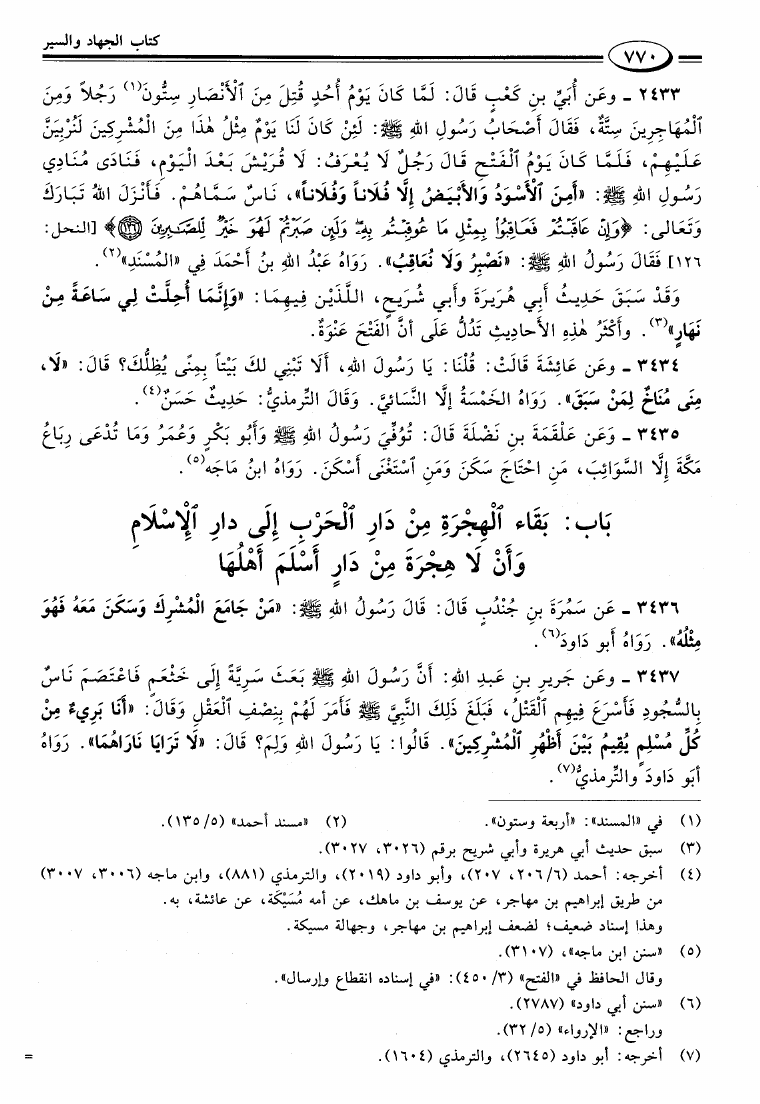 كتاب الجهاد والسير
٧٧٠
٢٤٣٣ ـ وعَن أُبَيِّ بنِ كَعْبٍ قَالَ: لَمَّا كَانَ يَوْمُ أُحُدٍ قُتِلَ مِنَ الْأَنْصَارِ سِتُّونَ(١) رَجُلاً وَمِنَ
الْمُهَاجِرِينَ سِتَّةٌ، فَقَالَ أَصْحَابُ رَسُولِ اللهِ ﷺ: لَئِنْ كَانَ لَنَا يَوْمٌ مِثْلُ هٰذَا مِنَ الْمُشْرِكِينَ لَنُرْبِيَنَّ
عَلَيْهِمْ، فَلَمَّا كَانَ يَوْمُ الْفَتْحِ قَالَ رَجُلٌ لَا يُعْرَفُ: لَا قُرَيْشَ بَعْدَ الْيَوْمِ، فَنَادَى مُنَادِي
رَسُولِ اللهِ ﷺ: «أَمِنَ الْأَسْوَدُ وَالأَبْيَضُ إِلَّا فُلَاناً وَفُلَاناً»، نَاسٌ سَمَّاهُمْ. فَأَنْزَلَ اللهُ تَبَارَكَ
وَتَعَالى: ﴿وَإِنْ عَاقَبْتُمْ فَعَاقِبُواْ بِمِثْلِ مَا عُوقِبْتُم بِهِۦ وَلَئِن صَبَرْتُمْ لَهُوَ خَيْرٌ لِّلصَّٰبِرِينَ ١٢٦﴾ [النحل:
١٢٦] فَقَالَ رَسُولُ اللهِ ﷺ: «نَصْبِرُ وَلَا نُعَاقِبُ». رَوَاهُ عَبْدُ اللهِ بنُ أَحْمَدَ فِي «الْمُسْنَدِ»(٢).
وَقَدْ سَبَقَ حَدِيثُ أَبِي هُرَيْرَةَ وأَبي شُرَيحٍ، اللَّذَيْنِ فِيهِمَا: «وَإِنَّمَا أُحِلَّتْ لِي سَاعَةً مِنْ
نَهَارٍ»(٣). وأَكْثَرُ هٰذِهِ الأَحاديثِ تَدُلُّ عَلَى أَنَّ الفَتْحَ عَنْوَةٌ.
٣٤٣٤ ـ وعَن عَائِشَةَ قَالَتْ: قُلْنَا: يَا رَسُولَ اللهِ، أَلَا تَبْنِي لكَ بَيْتاً بِمِنًى يُظِلُّكَ؟ قَالَ: «لَا،
مِنَى مُنَاخٌ لِمَنْ سَبَقَ». رَوَاهُ الْخَمْسَةُ إلَّا النَّسَائيَّ. وَقَالَ التِّرمذيُّ: حَدِيثٌ حَسَنٌ(٤).
٣٤٣٥ ـ وَعَن عَلْقَمَةَ بنِ نَضْلَةَ قَالَ: تُوُفِّيَ رَسُولُ اللهِ ﷺ وَأَبُو بَكْرٍ وَعُمَرُ وَمَا تُدْعَى رِبَاعُ
مَكَّةَ إِلَّا السَّوَائِبَ، مَنِ احْتَاجَ سَكَنَ وَمَنِ اسْتَغْنَى أَسْكَنَ. رَوَاهُ ابنُ مَاجَه(٥).
بَاب: بَقَاء الْهِجْرَةِ مِنْ دَارِ الْحَرْبِ إِلَى دارِ الْإِسْلَامِ
وَأَنْ لَا هِجْرَةَ مِنْ دَارٍ أَسْلَمَ أَهْلُهَا
٣٤٣٦ ـ عَن سَمُرَةَ بنِ جُنْدُبٍ قَالَ: قَالَ رَسُولُ اللهِ ﷺ: «مَنْ جَامَعَ الْمُشْرِكَ وَسَكَنَ مَعَهُ فَهُوَ
مِثْلُهُ». رَوَاهُ أَبو دَاودَ(٦).
٣٤٣٧ ـ وعَن جَرِيرِ بنِ عَبدِ اللهِ: أَنَّ رَسُولَ اللهِ ﷺ بَعَثَ سَرِيَّةً إِلَى خَثْعَمٍ فَاعْتَصَمَ نَاسٌ
بِالسُّجُودِ فَأَسْرَعَ فِيهِمِ الْقَتْلُ، فَبَلَغَ ذٰلِكَ النَّبِيَّ ﷺ فَأَمَرَ لَهُمْ بِنِصْفِ الْعَقْلِ وَقَالَ: «أَنَا بَرِيءٌ مِنْ
كُلِّ مُسْلِمٍ يُقِيمُ بَيْنَ أَظْهُرِ الْمُشْرِكِينَ». قَالُوا: يَا رَسُولَ اللهِ وَلِمَ؟ قَالَ: «لَا تَرَايَا نَارَاهُمَا». رَوَاهُ
أَبو دَاودَ والتِّرمذيُّ(٧).
(١) في «المسند»: «أربعة وستون». (٢) «مسند أحمد» (٥/ ١٣٥).
(٣) سبق حديث أبي هريرة وأبي شريح برقم (٣٠٢٦، ٣٠٢٧).
(٤) أخرجه: أحمد (٦/ ٢٠٦، ٢٠٧)، وأبو داود (٢٠١٩)، والترمذي (٨٨١)، وابن ماجه (٣٠٠٦، ٣٠٠٧)
من طريق إبراهيم بن مهاجر، عن يوسف بن ماهك، عن أمه مُسَيْكَة، عن عائشة، به.
وهذا إسناد ضعيف؛ لضعف إبراهيم بن مهاجر، وجهالة مسيكة.
(٥) «سنن ابن ماجه»، (٣١٠٧).
وقال الحافظ في «الفتح» (٣/ ٤٥٠): «في إسناده انقطاع وإرسال».
(٦) «سنن أبي داود» (٢٧٨٧).
وراجع: «الإرواء» (٥/ ٣٢).
(٧) أخرجه: أبو داود (٢٦٤٥)، والترمذي (١٦٠٤). =